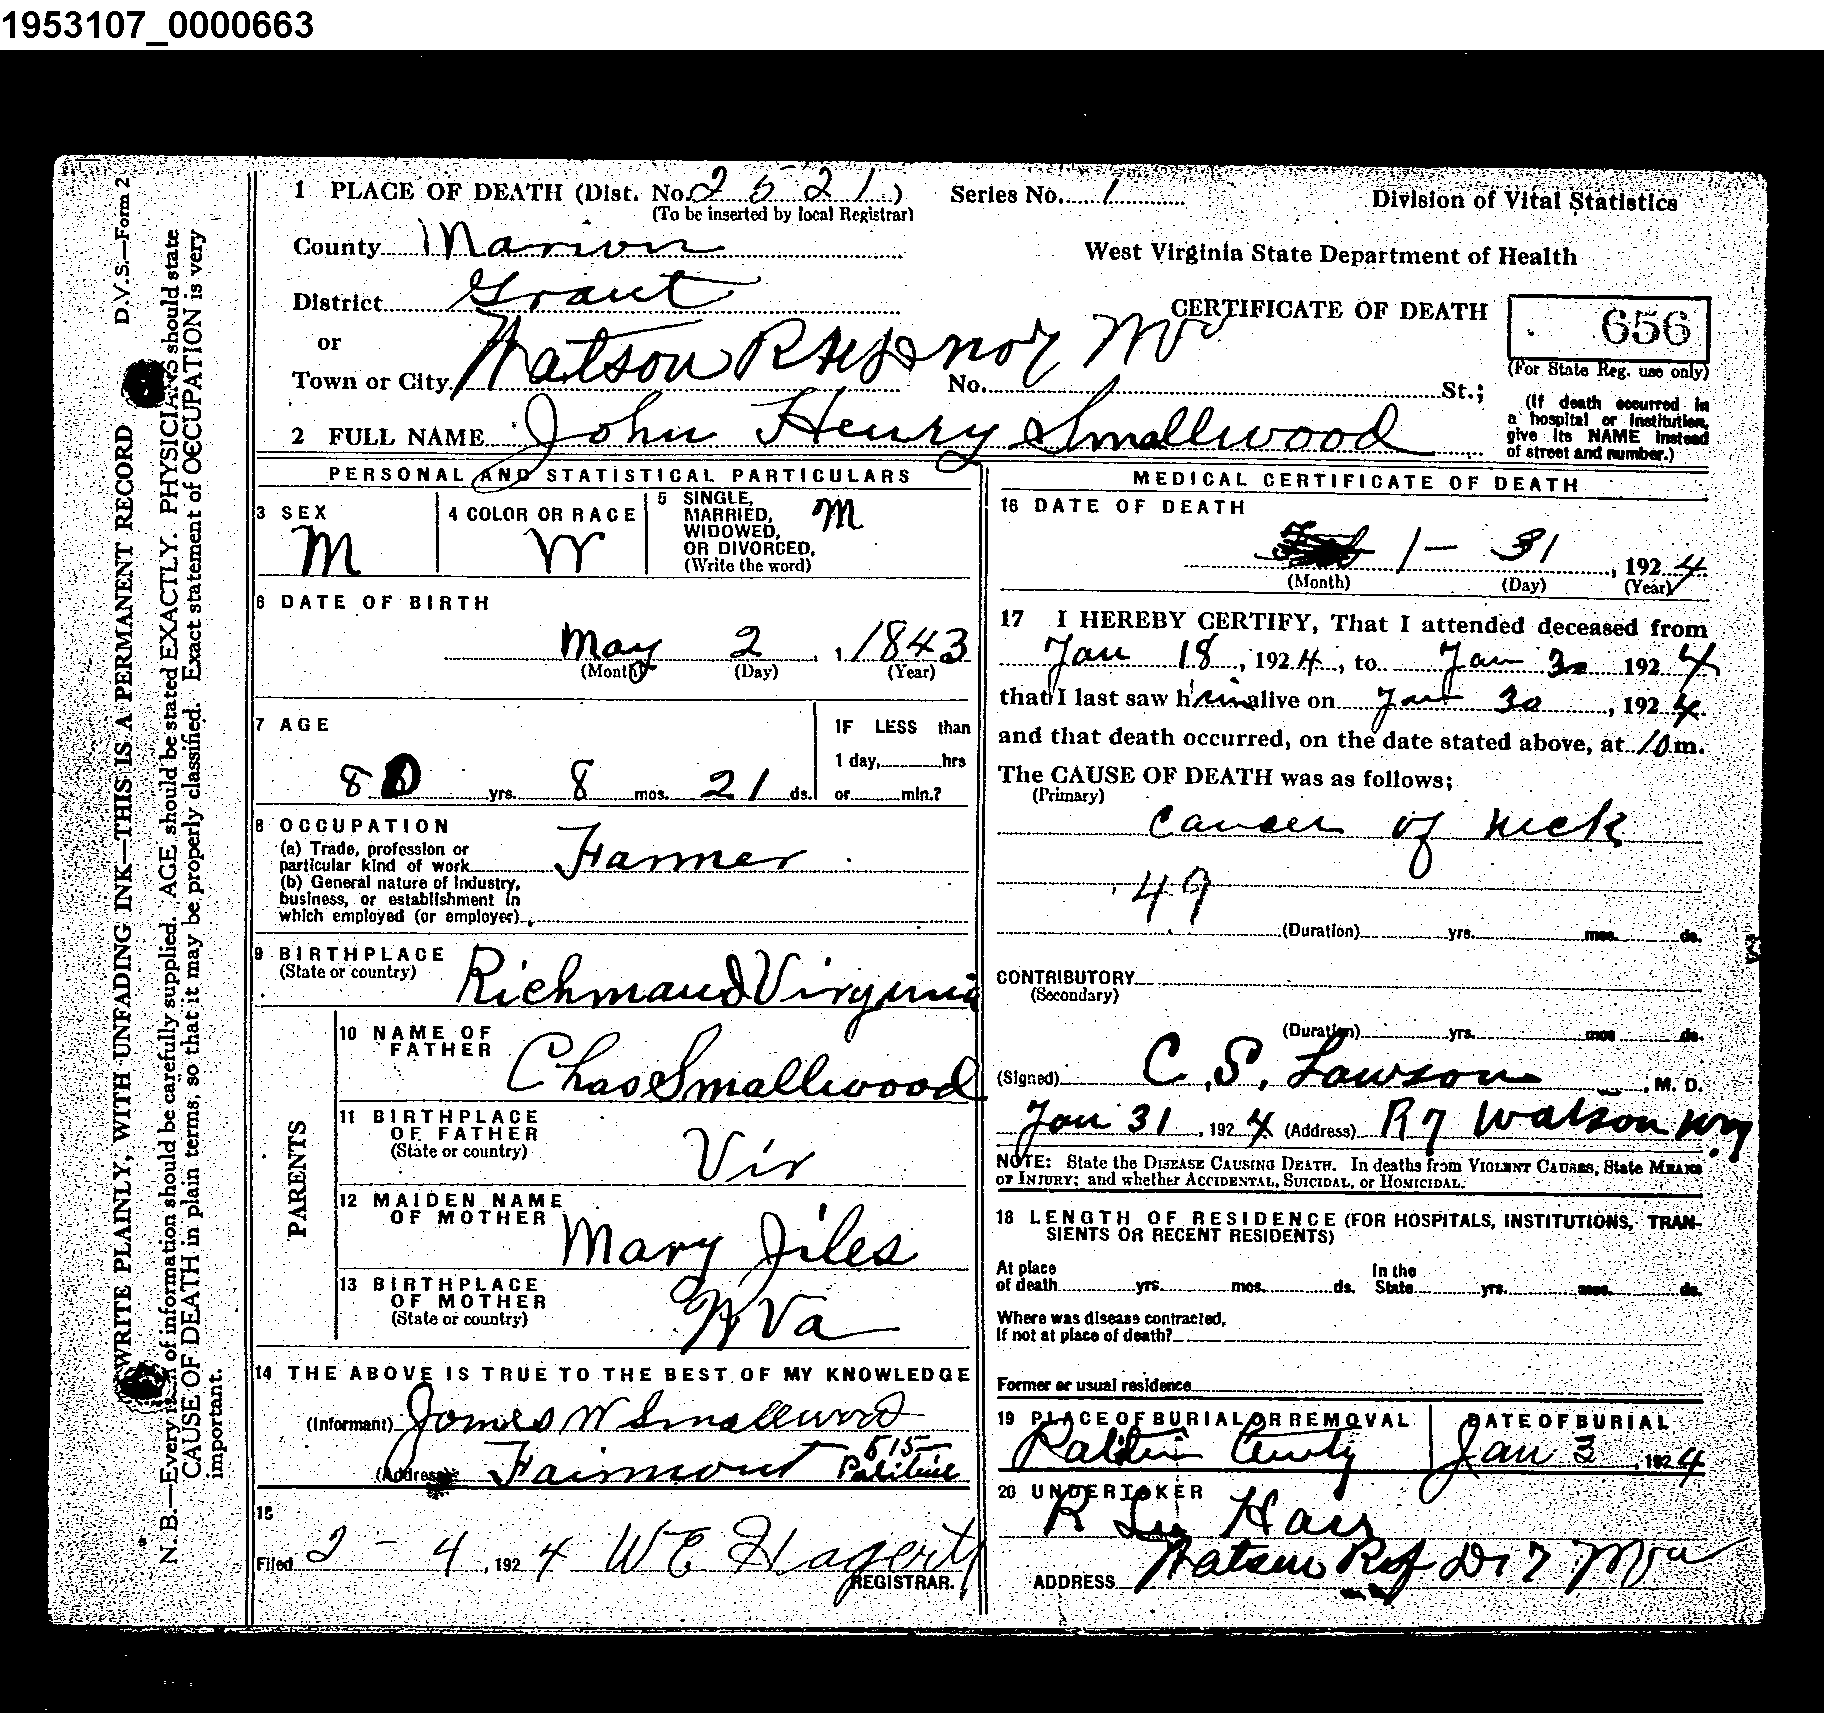 1953107_0000663
D.V.S.—Form 2
WRITE PLAINLY, WITH UNFADING INK—THIS IS A PERMANENT RECORD
N. B.—Every item of information should be carefully supplied. AGE should be stated EXACTLY. PHYSICIANS should state
CAUSE OF DEATH in plain terms, so that it may be properly classified. Exact statement of OCCUPATION is very
important.
1 PLACE OF DEATH (Dist. No. 2521) Series No. 1
(To be inserted by local Registrar)
Division of Vital Statistics
County Marion
West Virginia State Department of Health
District Grant
CERTIFICATE OF DEATH
656
(For State Reg. use only)
or
Town or City Watson No. St.;
(If death occurred in
a hospital or institution,
give its NAME instead
of street and number.)
2 FULL NAME John Henry Smallwood
PERSONAL AND STATISTICAL PARTICULARS
3 SEX
M
4 COLOR OR RACE
W
5 SINGLE,
MARRIED,
WIDOWED,
OR DIVORCED,
(Write the word)
M
6 DATE OF BIRTH
May 2, 1843
(Month) (Day) (Year)
7 AGE
80 yrs. 8 mos. 21 ds.
IF LESS than
1 day, hrs
or min.?
8 OCCUPATION
(a) Trade, profession or
particular kind of work Farmer
(b) General nature of Industry,
business, or establishment in
which employed (or employer)
9 BIRTHPLACE
(State or country) Richmand Virginia
PARENTS
10 NAME OF
FATHER
Chas Smallwood
11 BIRTHPLACE
OF FATHER
(State or country)
Vir
12 MAIDEN NAME
OF MOTHER
Mary Jiles
13 BIRTHPLACE
OF MOTHER
(State or country)
W Va
14 THE ABOVE IS TRUE TO THE BEST OF MY KNOWLEDGE
(Informant) James W Smallwood
(Address) Fairmont 515
15
Filed 2-4, 1924 W E Hagerty
REGISTRAR.
MEDICAL CERTIFICATE OF DEATH
16 DATE OF DEATH
1 — 31, 1924
(Month) (Day) (Year)
17 I HEREBY CERTIFY, That I attended deceased from
Jan 18, 1924, to Jan 30 1924
that I last saw him alive on Jan 30, 1924.
and that death occurred, on the date stated above, at 10 m.
The CAUSE OF DEATH was as follows;
(Primary)
Cancer of neck
49
(Duration) yrs. mos. ds.
CONTRIBUTORY
(Secondary)
(Duration) yrs. mos ds.
(Signed) C. S. Lawson, M. D.
Jan 31, 1924 (Address) R 7 Watson
NOTE: State the DISEASE CAUSING DEATH. In deaths from VIOLENT CAUSES, State MEANS
OF INJURY; and whether ACCIDENTAL, SUICIDAL, or HOMICIDAL.
18 LENGTH OF RESIDENCE (FOR HOSPITALS, INSTITUTIONS, TRAN-
SIENTS OR RECENT RESIDENTS)
At place
of death yrs. mos. ds.
In the
State yrs. mos. ds.
Where was disease contracted,
If not at place of death?
Former or usual residence
19 PLACE OF BURIAL OR REMOVAL
DATE OF BURIAL
Jan, 1924
20 UNDERTAKER
R
ADDRESS Watson